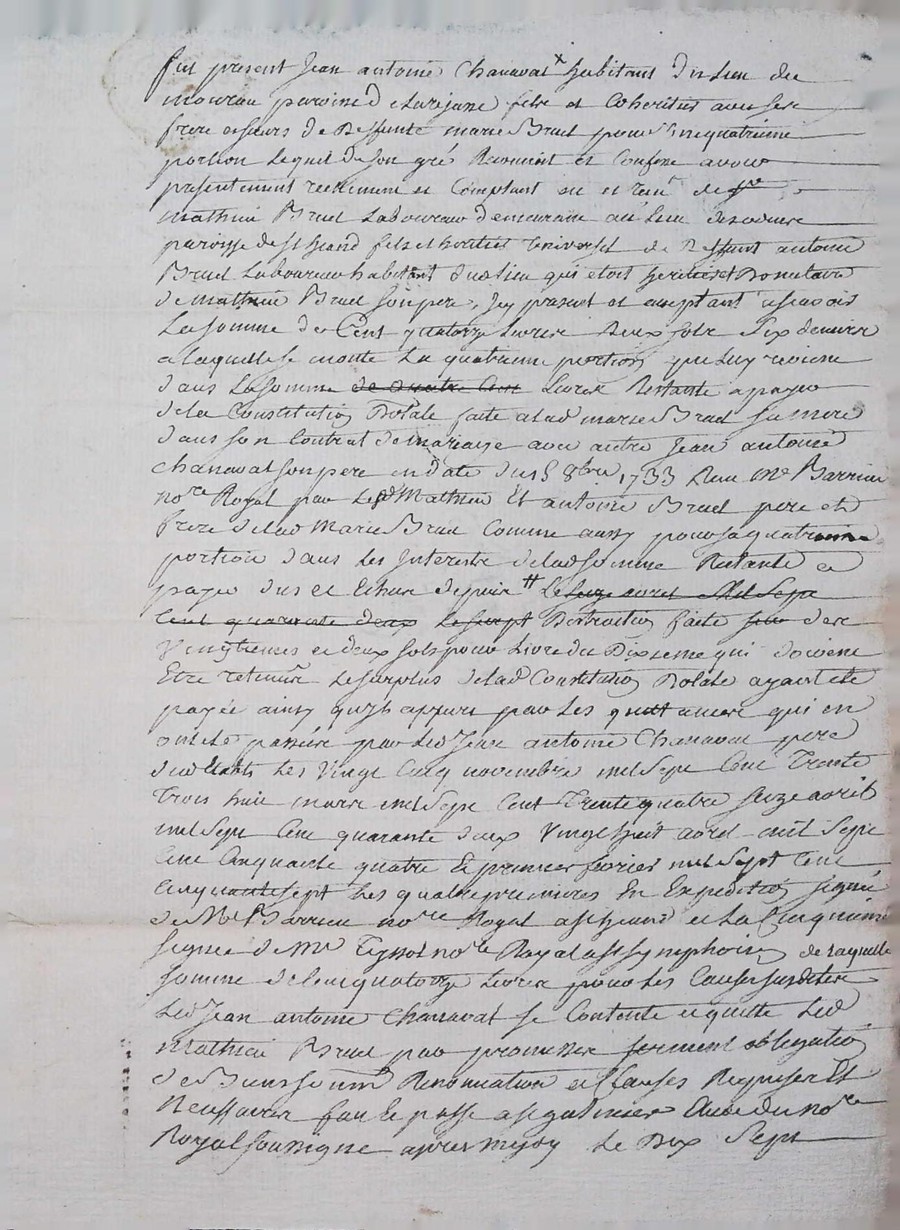 fut present Jean antoine Chanavat x habitant du lieu du
moureau paroisse d fils et Coheritier avec ses
frere et seurs de Deffunte marie Bruel pour une quatrieme
portion Lequel de son gré Reconnoit et Confesse avoir
presentement reellement et Comptant eu et receu de
mathieu Bruel Laboureur demeurant au Lieu de
paroisse de st Jeand fils et heritier universel de Deffunt antoine
Bruel Laboureur habitant dud lieu qui etoit heritier et Donataire
de mathieu Bruel son pere, Icy present et acceptant assavoir
La somme de Cent quatorze Livres Deux sols six deniers
a laquelle se monte La quatrieme portion que luy revient
dans La somme de quatre Cent Livres Restante a payer
de la Constitution Dotale faite a lad marie Bruel sa mere
dans son Contrat de mariage avec autre Jean antoine
Chanavat son pere en date du 15 8bre 1733 Recu Me Barrieu
nore Royal par Lesd Mathieu Et antoine Bruel pere et
frere de lad Marie Bruel Comme aussy pour sa quatrieme
portion dans Les Interests de lad somme Restante a
payer dus et Echus depuis # Le seize avril Mil Sept
Cent quarante deux Le surpl Distraction faite des
Vingtiemes et deux sols pour Livre du Dixieme qui doivent
Etre retenus Le surplus de lad Constitution Dotale ayant ete
payée ainsy quil appert par Les quittances qui en
ont ete passées par led Jean antoine Chanavat pere
Les Vingt Cinq novembre mil Sept Cent Trente
Trois huit mars mil Sept Cent Trente quatre Seize avril
mil Sept Cent quarante deux Vingt huit avril mil Sept
Cent Cinquante quatre Et premier fevrier mil Sept Cent
Cinquante sept Les quatre premieres En Expedition signé
de Me Barrieu nore Royal a st Jeand et La Cinquieme
signee de Mr nore Royal a st symphorien de Laquelle
somme de Cent quatorze Livres pour Les Causes susdites
Led Jean antoine Chanavat se Contente et quitte Led
Mathieu Bruel par promesse serment obligation
de Biens soum Renonciation et Clauses Requises Et
Necessaires fait Et passé a st galmier Etude du nore
Royal soussigne apres midy Le Dix Sept